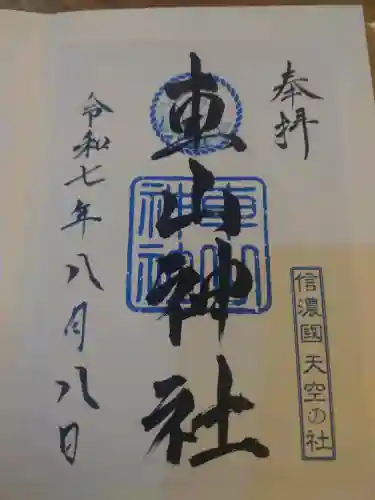 奉拝
信濃國 天空の社
車山神社
車山神社
令和七年八月八日